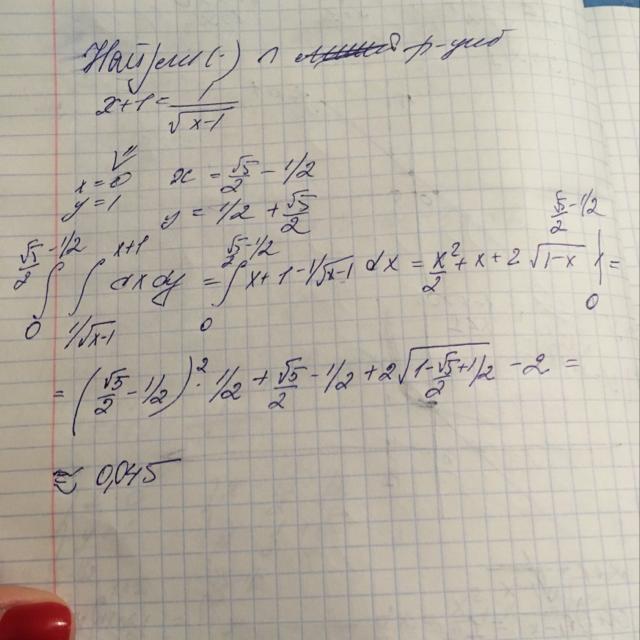 Найдем (·) ∩ р-ций
x+1 = 1/√x-1
x = 0 x = √5/2 - 1/2
y = 1 y = 1/2 + √5/2
∫_0^{√5/2 - 1/2} ∫_{1/√x-1}^{x+1} dx dy = ∫_0^{√5/2 - 1/2} x+1 - 1/√x-1 dx = x²/2 + x + 2√1-x |_0^{√5/2 - 1/2} =
= (√5/2 - 1/2)² · 1/2 + √5/2 - 1/2 + 2√1-√5/2+1/2 - 2 =
≈ 0,045